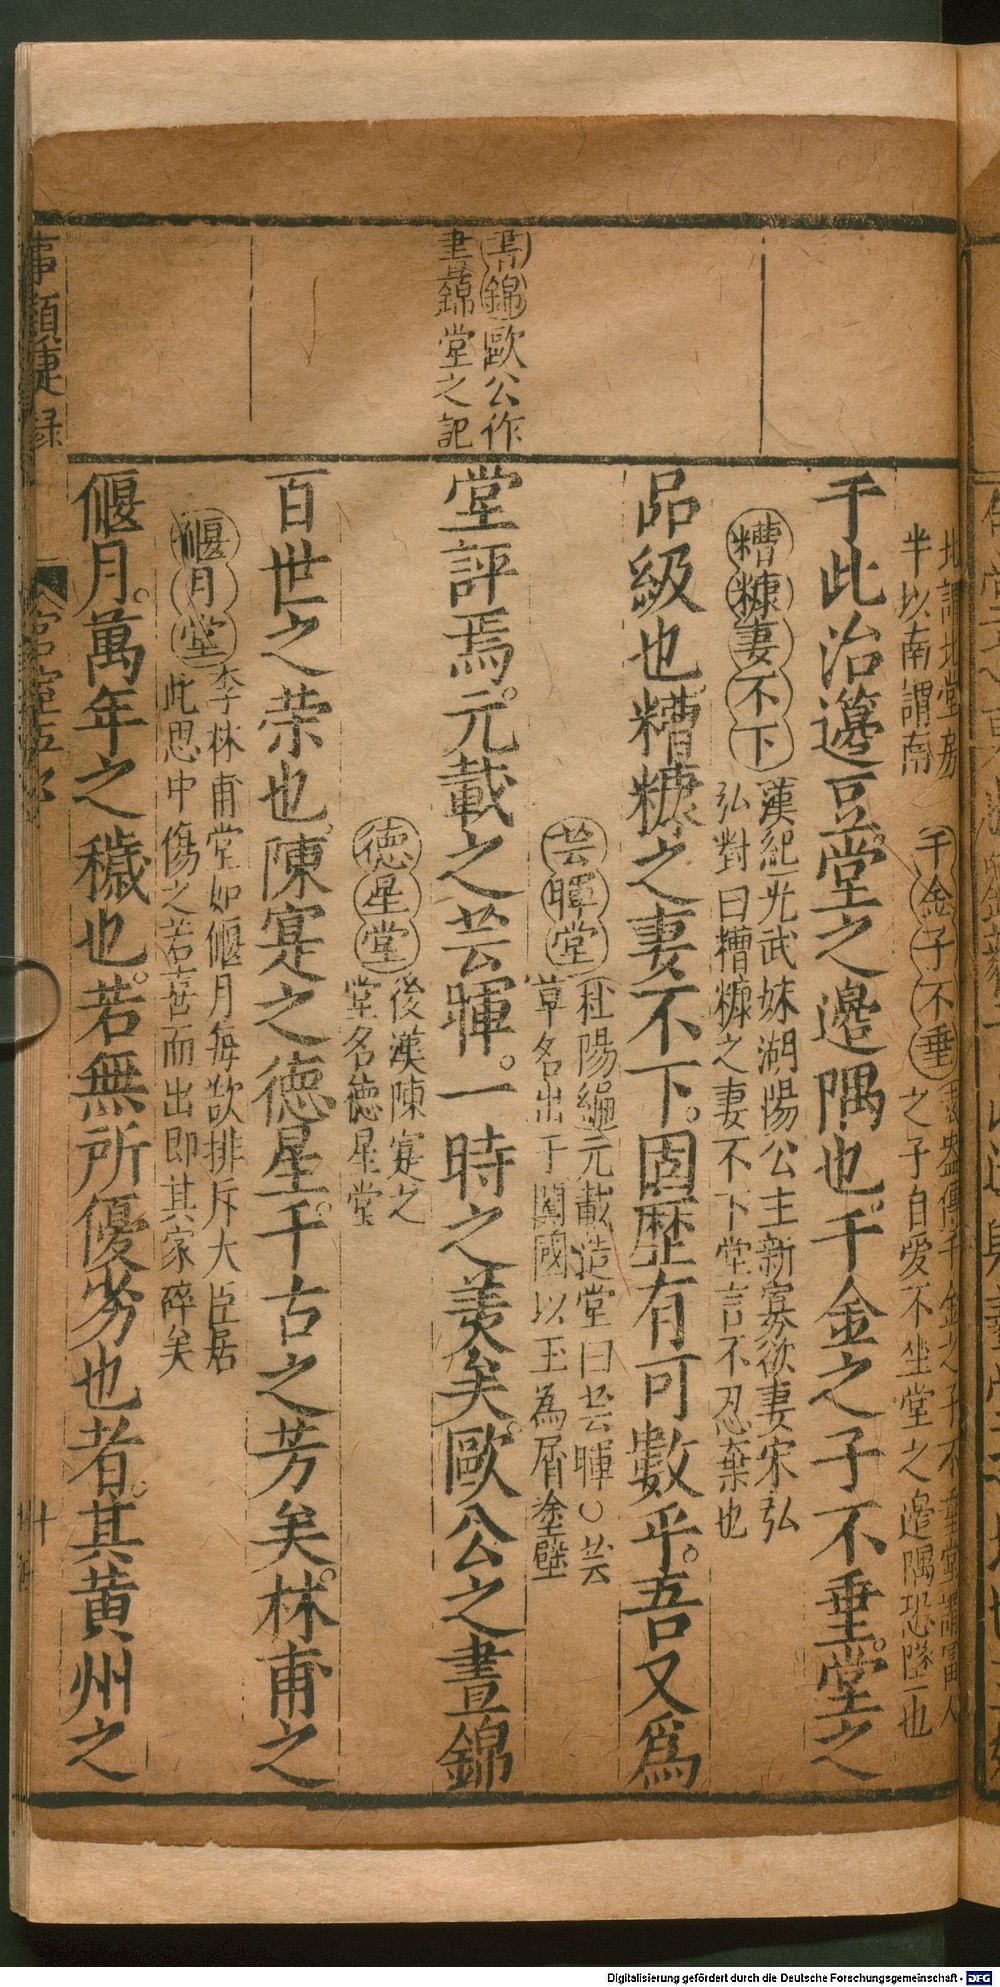 北謂北堂房
半以南謂南
千金子不垂
袁盎傳千金之子不垂堂謂富人
之子自愛不坐堂之邉隅恐墜也
于此治籩豆堂之邉隅也千金之子不垂堂之
糟糠妻不下
漢紀光武妹湖陽公主新寡欲妻宋弘
弘對曰糟糠之妻不下堂言不忍棄也
品級也糟糠之妻不下。固歷有可數乎。吾又爲
芸暉堂
杜陽編元載造堂曰芸暉○芸
草名出于闐國以玉為屑塗壁
晝錦歐公作
晝錦堂之記
堂評焉。元載之芸暉。一時之美矣。歐公之晝錦
德星堂
後漢陳寔之
堂名德星堂
百世之荣也。陳寔之德星。千古之芳矣。林甫之
偃月堂
李林甫堂如偃月每欲排斥大臣居
此思中傷之若喜而出即其家碎矣
偃月。萬年之穢也。若無所優劣也者。其黄州之
事類捷録
宫室五
十
Digitalisierung gefördert durch die Deutsche Forschungsgemeinschaft - DFG